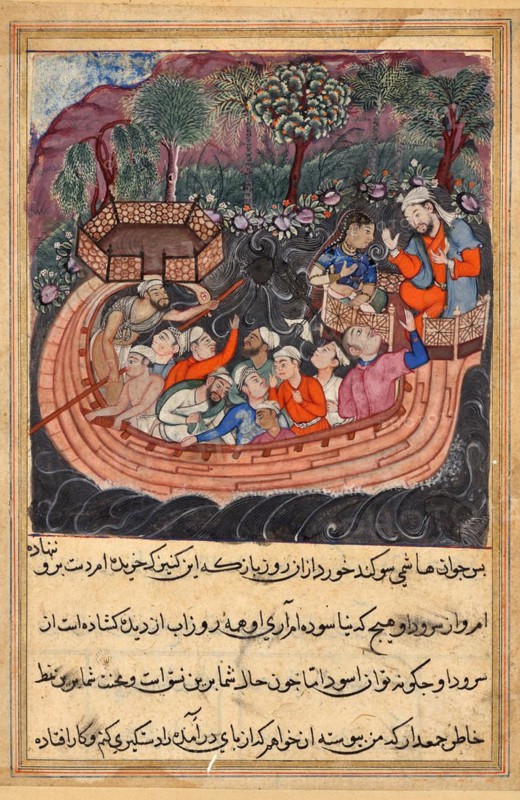 نهاده
پس جوان هاشمی سوکند خورد از ان روز باز که این کنیزک خریده ام دست برو
ام و از سرود او هیچ کدنیا سوده ام آری او همه روز اب از دیده کشاده است از
سرود او چکونه توان اسود اما چون حال شما برین نسق است و محنت شما برین نمط
خاطر جمع دارید که من پیوسته ان خواهم که از پای در آمده را دستکیری کنم و کار افتاده